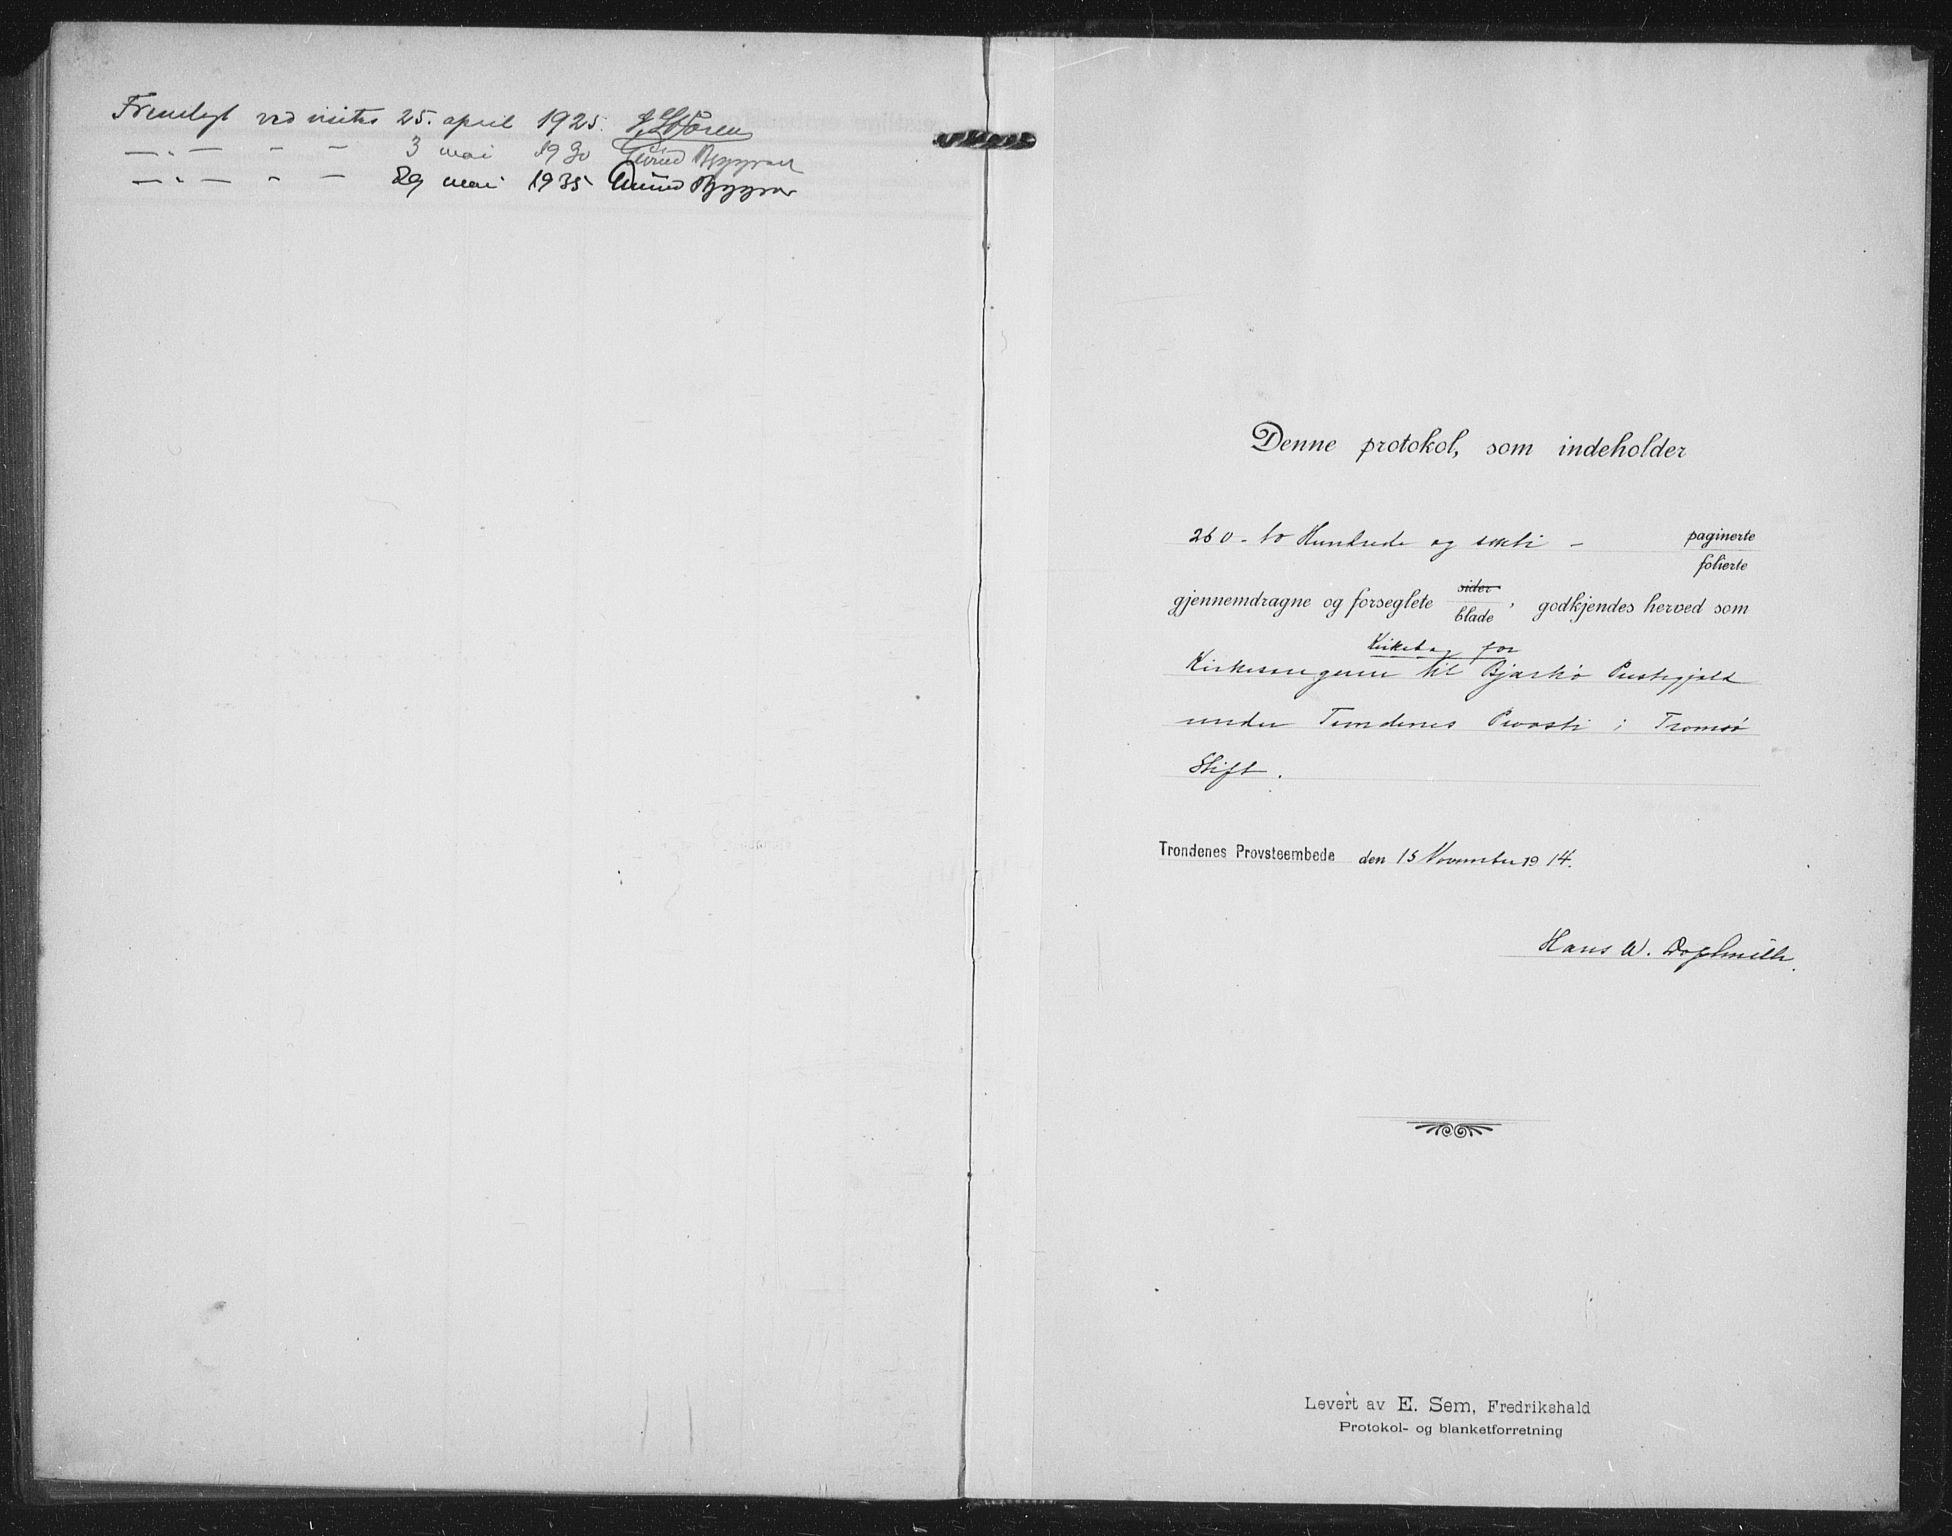 Fremlagt ved visitas 25. april 1925. J. Støren
— „ — „ — 3 mai 1930 Eivind Berggrav
— „ — „ — 29 mai 1935 Eivind Berggrav
Denne protokol, som indeholder
260 - to Hundrede og seksti - paginerte
folierte
gjennemdragne og forseglete sider blade, godkjendes herved som
Kirkebog for
Kirkesangeren til Bjarkø Prestegjeld
under Trondenes Provsti i Tromsø
Stift.
Trondenes Provsteembede den 15 November 1914.
Hans W.
Levert av E. Sem, Fredrikshald
Protokol- og blanketforretning